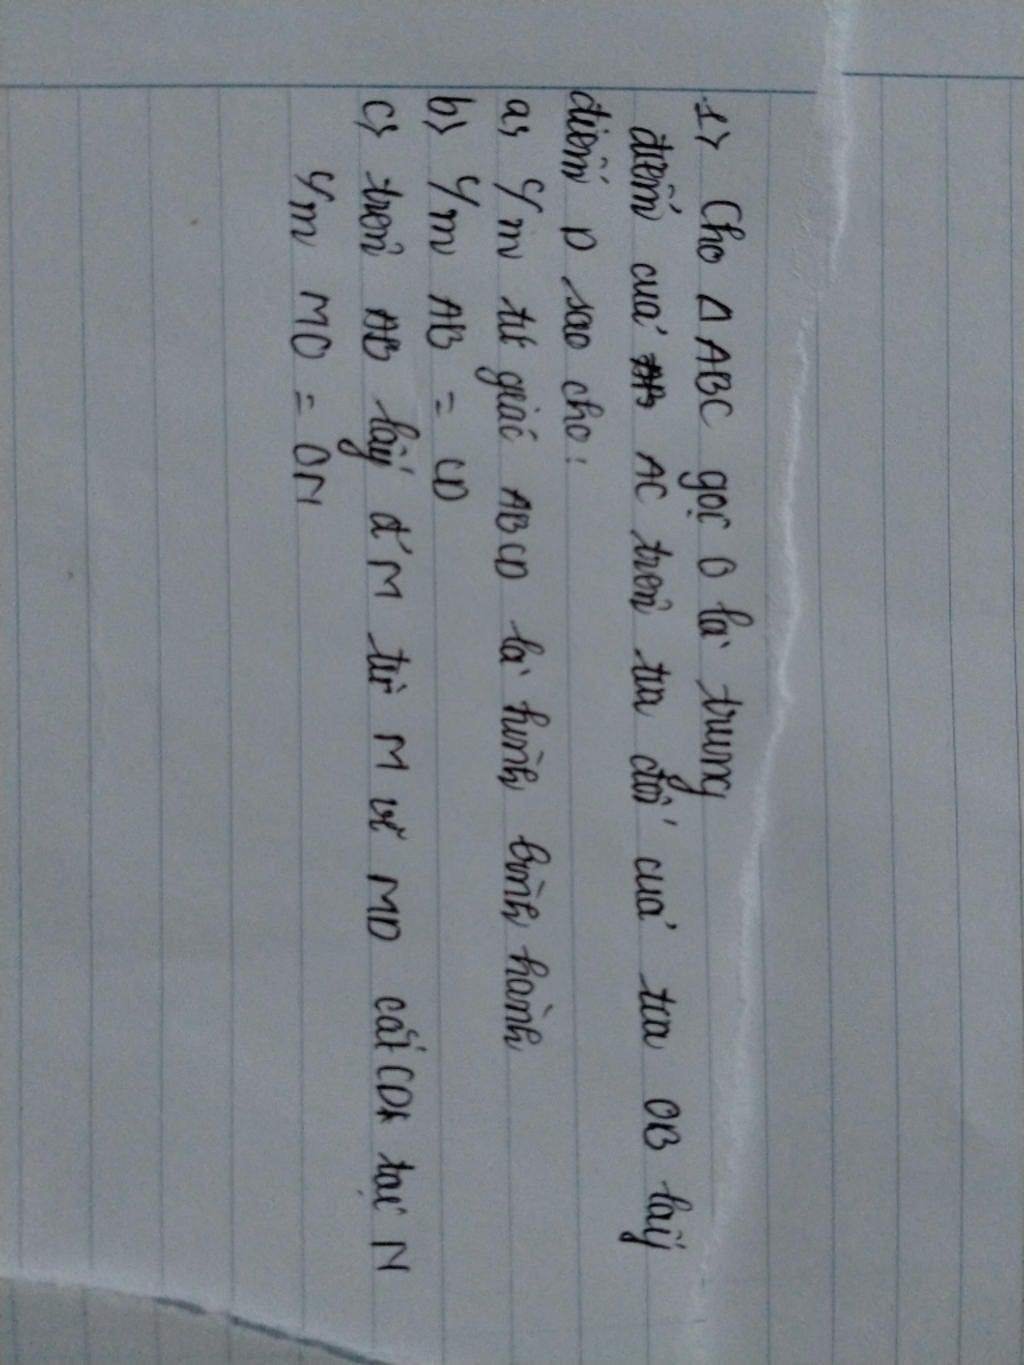 1> Cho Δ ABC gọc O là trung
điểm của AC trên tia đối của tia OB lấy
điểm D sao cho:
a, c/m tứ giác ABCD là hình bình hành
b> c/m AB = CD
c> trên AB lấy đ' M từ M vẽ MD cắt CD tại N
c/m MO = ON